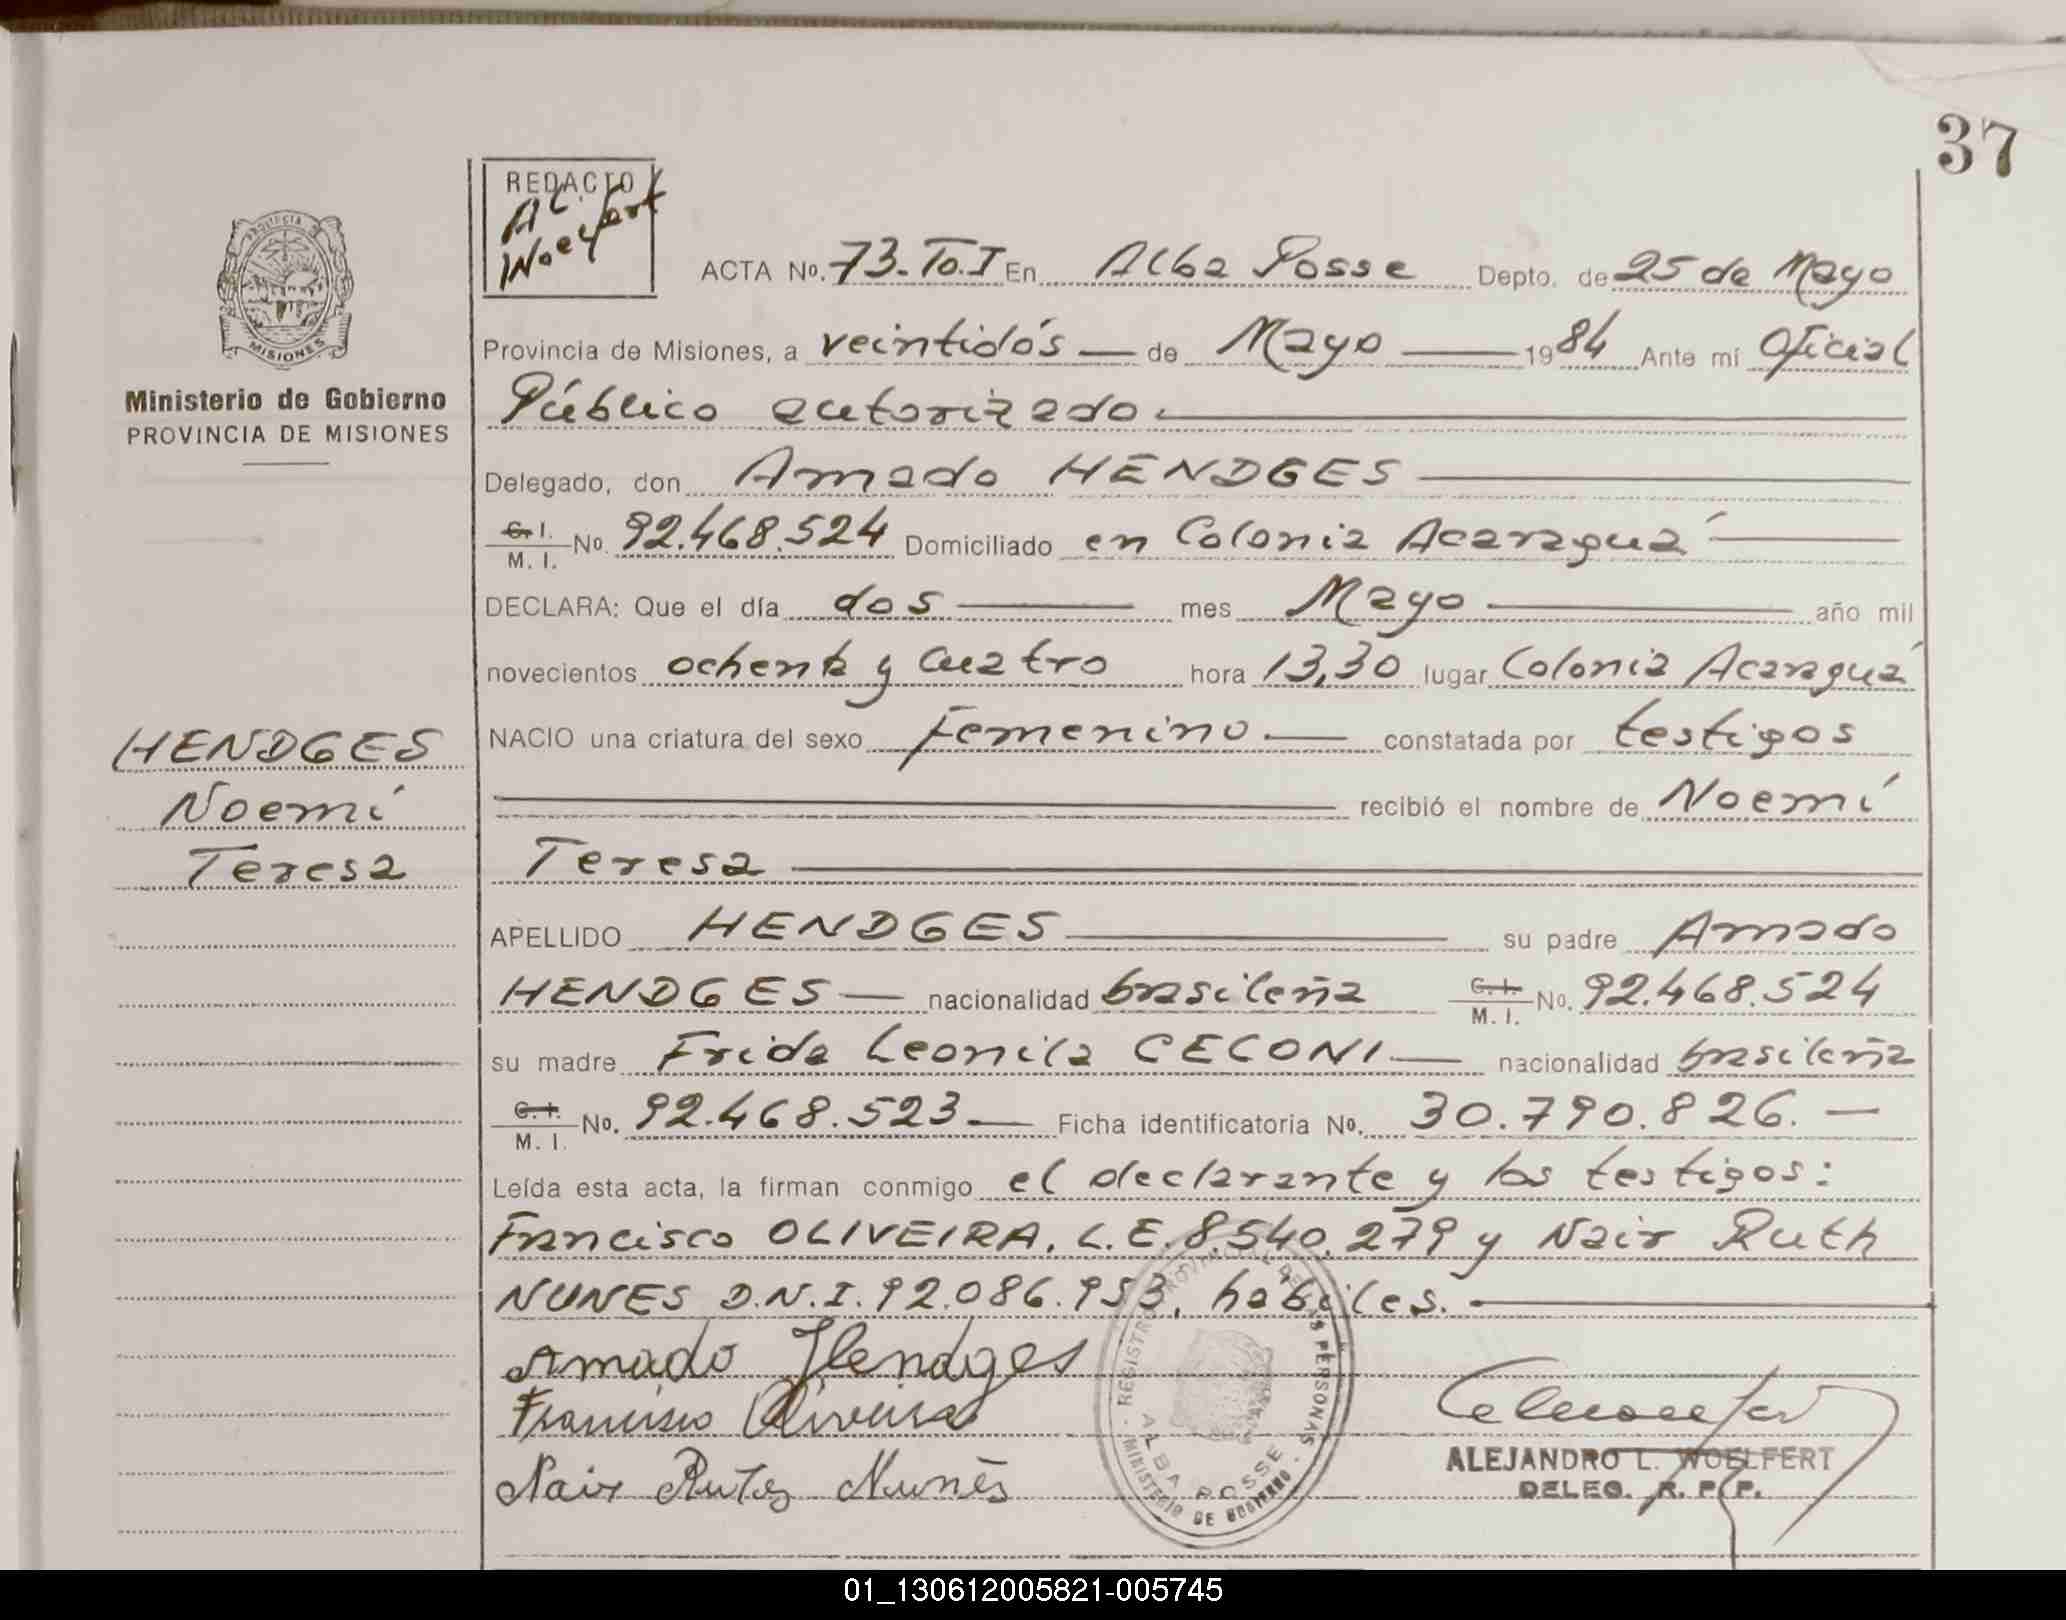 37
REDACTO
AL.
Woelfert
PROVINCIA
MISIONES
Ministerio de Gobierno
PROVINCIA DE MISIONES
ACTA No. 73. To. I En Alba Posse Depto. de 25 de Mayo
Provincia de Misiones, a veintidós — de Mayo — 1984 Ante mí Oficial
Público autorizado.
Delegado, don Amado HENDGES
C. I.
M. I. No. 92.468.524 Domiciliado en Colonia Acaraguá
DECLARA: Que el día dos — mes Mayo — año mil
novecientos ochenta y cuatro hora 13,30 lugar Colonia Acaraguá
NACIO una criatura del sexo Femenino. — constatada por testigos
recibió el nombre de Noemí
Teresa
HENDGES
Noemí
Teresa
APELLIDO HENDGES — su padre Amado
HENDGES — nacionalidad brasileña C. I.
M. I. No. 92.468.524
su madre Frida Leonila CECONI — nacionalidad brasileña
C. I.
M. I. No. 92.468.523 — Ficha identificatoria No. 30.790.826. —
Leída esta acta, la firman conmigo el declarante y los testigos:
Francisco OLIVEIRA, L.E. 8.540.279 y Nair Ruth
NUNES D.N.I. 92.086.953, hábiles. —
Amado Hendges
Francisco Oliveira
Nair Rute Nunes
REGISTRO PROVINCIAL DE LAS PERSONAS
ALBA POSSE
MINISTERIO DE GOBIERNO
ALEJANDRO L. WOELFERT
DELEG. R. P. P.
01_130612005821-005745